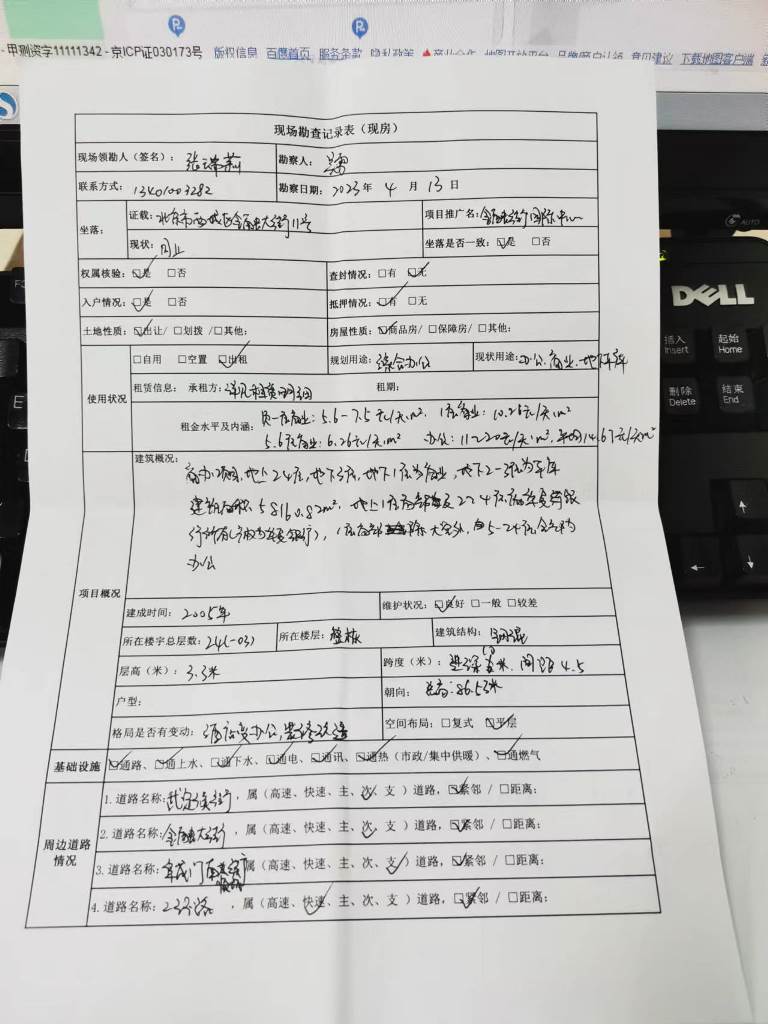 - 甲测资字11111342 - 京ICP证030173号 版权信息 百度首页 服务条款 隐私政策 商业合作 地图开放平台 品牌/商户认领 意见建议 下载地图客户端
现场勘查记录表（现房）
现场领勘人（签名）： 张瑞莉 勘察人：
联系方式：13401003282 勘察日期：2023年 4 月 13 日
坐落： 证载：北京市西城区金融大街11号 项目推广名：金融街国际中心
现状：同上 坐落是否一致：☑是 □否
权属核验：☑是 □否 查封情况：□有 ☑无
入户情况：☑是 □否 抵押情况：☑有 □无
土地性质：☑出让/ □划拨 /□其他： 房屋性质：☑商品房/ □保障房/ □其他：
使用状况 □自用 □空置 ☑出租 规划用途：综合办公 现状用途：办公、商业、地下车库
租赁信息： 承租方：详见租赁明细 租期：
租金水平及内涵：负一层商业：5.6-7.5元/天/m²，1层商业：10.26元/天/m²
5.6层商业：6.26元/天/m² 办公：11~20元/天/m²，平均14.67元/天/m²
项目概况 建筑概况：
商办项目，地上24层，地下3层，地下1层为商业，地下2-3层为车库
建筑面积58160.82m²，地上1层
1层 大堂外，5-24层全部为
办公
建成时间：2005年 维护状况：☑良好 □一般 □较差
所在楼宇总层数：24(-03) 所在楼层：整栋 建筑结构：钢混
层高（米）：3.3米 跨度（米）：进深 米，间距4.5
户型： 朝向： 总高：86.53米
格局是否有变动：酒店变办公，装修改造 空间布局：□复式 ☑平层
基础设施 ☑通路、☑通上水、☑通下水、☑通电、☑通讯、☑通热（市政/集中供暖）、☑通燃气
周边道路情况 1.道路名称：武定侯街，属（高速、快速、主、次、支）道路，☑紧邻 / □距离：
2.道路名称：金融大街，属（高速、快速、主、次、支）道路，☑紧邻 / □距离：
3.道路名称：阜成门南 ，属（高速、快速、主、次、支）道路，☑紧邻 / □距离：
4.道路名称：2环路，属（高速、快速、主、次、支）道路，☑紧邻 / □距离：
DELL
AUTO
插入 Insert
起始 Home
删除 Delete
结束 End